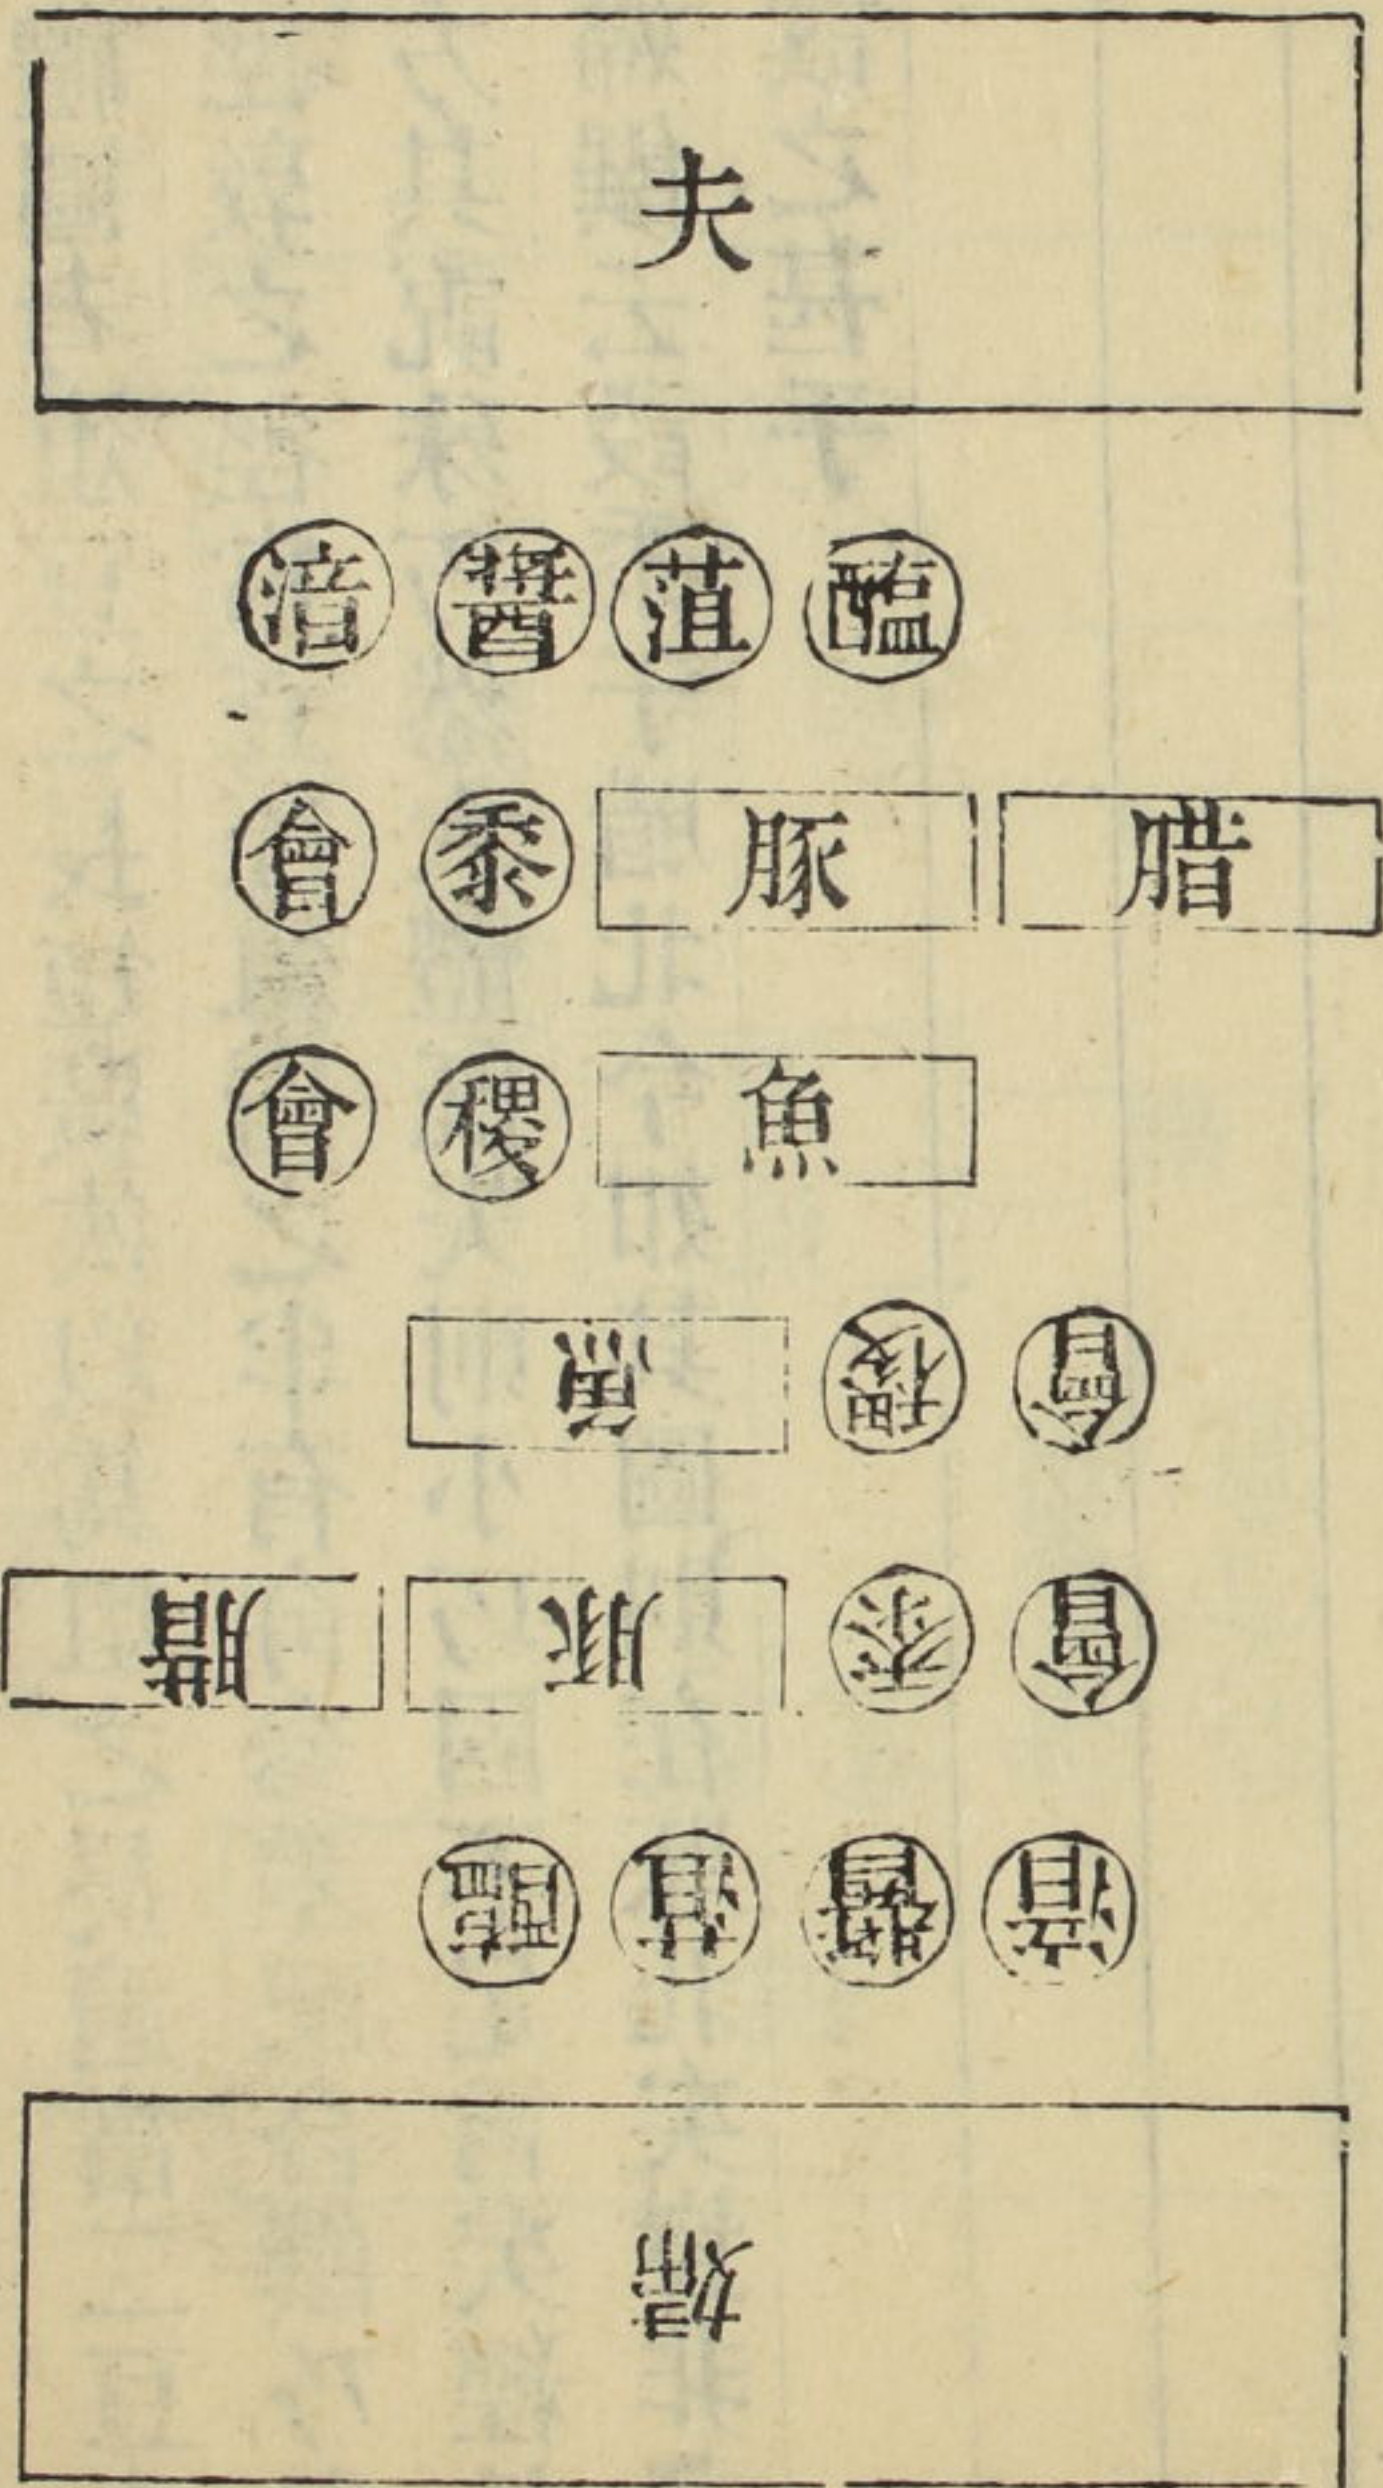 夫
湆 醬 菹 醢
會 黍 豚 腊
會 稷 魚
魚 稷 會
腊 豚 黍 會
醢 菹 醬 湆
婦